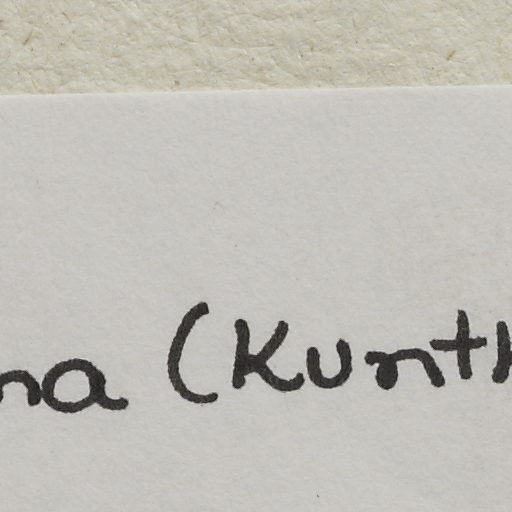 na (Kunth